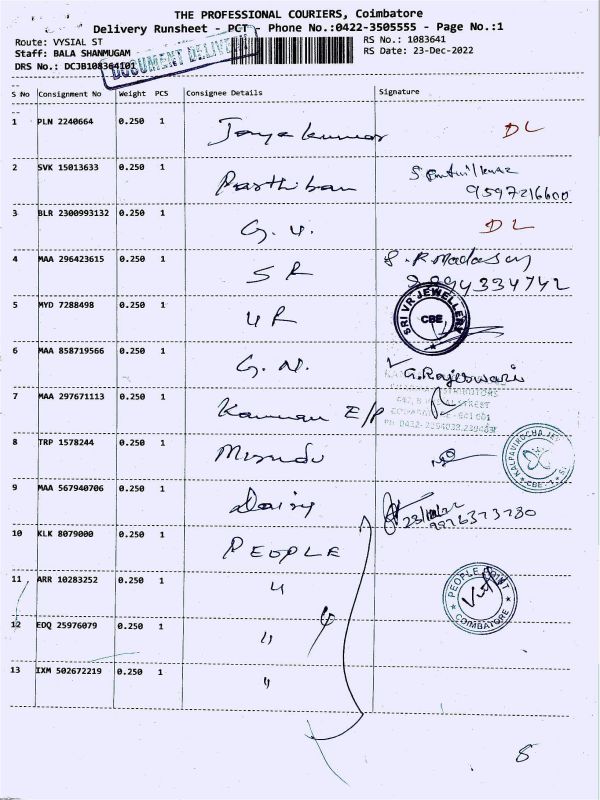 THE PROFESSIONAL COURIERS, Coimbatore
Delivery Runsheet - PCT - Phone No.:0422-3505555 - Page No.:1
Route: VYSIAL ST
RS No.: 1083641
Staff: BALA SHANMUGAM
RS Date: 23-Dec-2022
DRS No.: DCJB108364101
DOCUMENT DELIVERY
S No Consignment No Weight PCS Consignee Details Signature
1 PLN 2240664 0.250 1 Jayakumar DL
2 SVK 15013633 0.250 1 Parthiban
9597216600
3 BLR 2300993132 0.250 1 G. V. DL
4 MAA 296423615 0.250 1 S R S. R Madasay
8894334742
5 MYD 7288498 0.250 1 U R SRI VR JEWELLERY CBE
6 MAA 858719566 0.250 1 G. N. G. Rajeswari
7 MAA 297671113 0.250 1 Kannan E/P
8 TRP 1578244 0.250 1
9 MAA 567940706 0.250 1 Daisy
9976373780
10 KLK 8079000 0.250 1 PEOPLE
11 ARR 10283252 0.250 1 "
PEOPLE POINT
COIMBATORE
12 EDQ 25976079 0.250 1 "
13 IXM 502672219 0.250 1 "
8